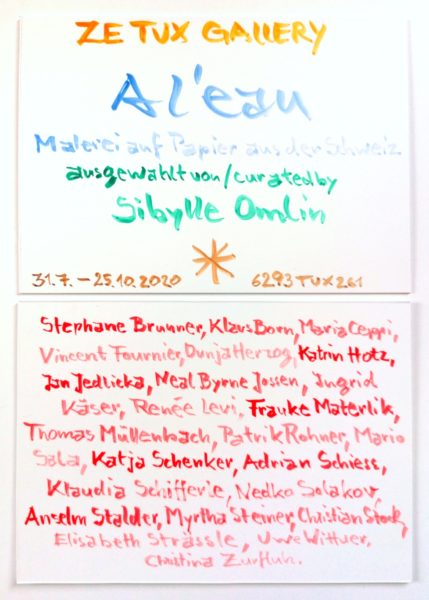 ZE TUX GALLERY
A l'eau
Malerei auf Papier aus der Schweiz
ausgewählt von/curated by
Sibylle Omlin
31.7. – 25.10.2020 6293 TUX 261
Stephane Brunner, Klaus Born, Maria Ceppi,
Vincent Fournier, Dunja Herzog, Katrin Hotz,
Jan Jedlicka, Neal Byrne Jossen, Ingrid
Käser, Renée Levi, Frauke Materlik,
Thomas Müllenbach, Patrik Rohner, Mario
Sala, Katja Schenker, Adrian Schiess,
Klaudia Schifferle, Nedko Solakov,
Anselm Stalder, Myrtha Steiner, Christian Stock,
Elisabeth Strässle, Uwe Wittwer,
Christina Zurfluh.